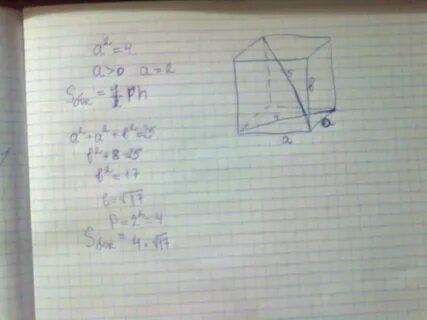 a² = 4
a>0 a=2
Sбок = 1/2 Ph
a²+a²+b²=25
b²+8=25
b²=17
b=√17
P=2²=4
Sбок= 4·√17
5
b
a
a